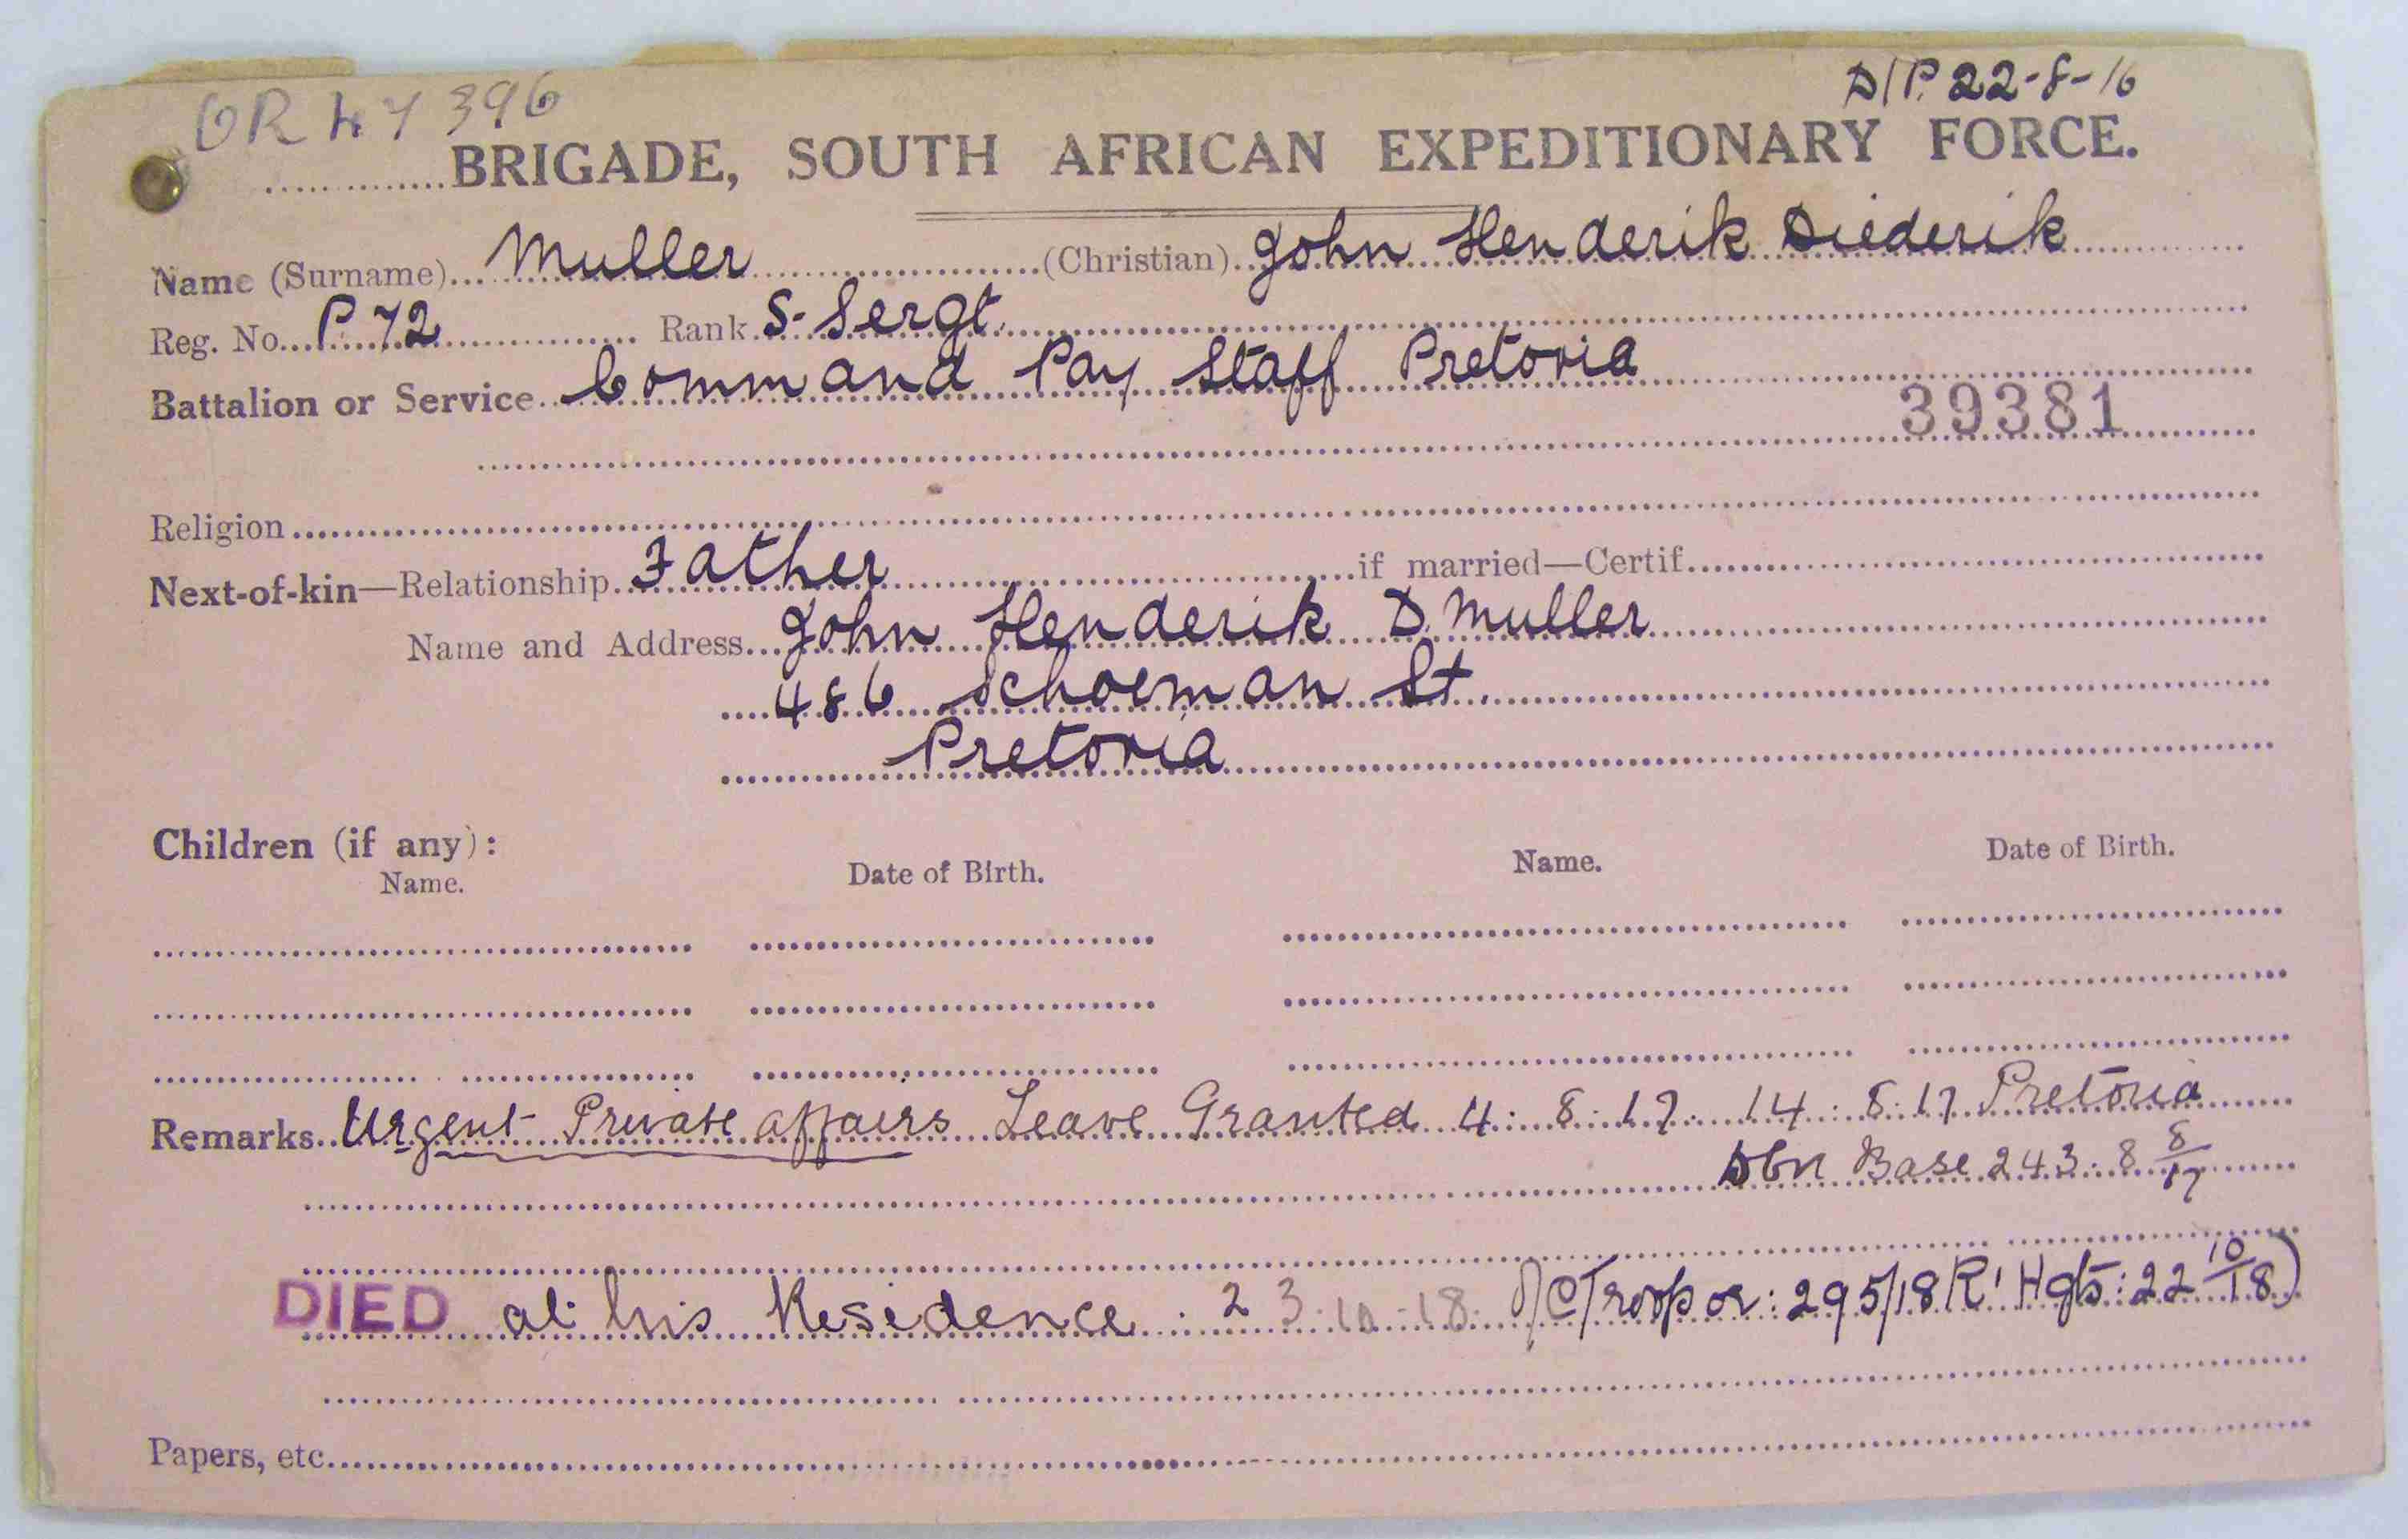 OR 47 396
D/P. 22-8-16
BRIGADE, SOUTH AFRICAN EXPEDITIONARY FORCE.
Name (Surname) Muller (Christian) John Henderik Diederik
Reg. No. P. 72 Rank S-Sergt.
Battalion or Service Command Pay Staff Pretoria
39381
Religion
Next-of-kin—Relationship Father if married—Certif.
Name and Address John Henderik D. Muller
486 Schoeman St.
Pretoria
Children (if any):
Name. Date of Birth. Name. Date of Birth.
Remarks Urgent Private affairs Leave Granted 4:8:17 14:8:17 Pretoria
Dbn Base 243:8 8/17
DIED at his Residence 23.10.18. 295/18 R' Hgts: 22 10/18)
Papers, etc.